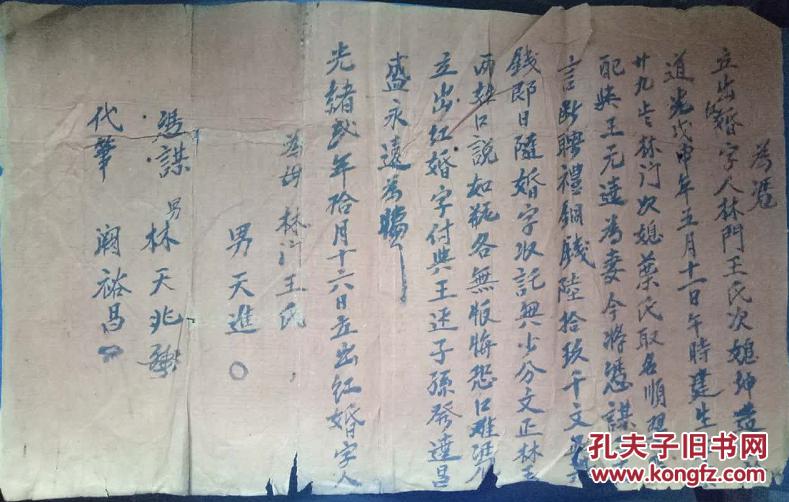 為憑
立出婚字人林門王氏次媳坤造
道光戊申年五月十一日午時建生
廿九岁林门次媳葉氏取名順
配與王元達為妻今將憑謀
言断聘禮銅錢陸拾玖千文
錢即日隨婚字收訖無少分文正林王
両契口說如瓶各無恨悔恐口难凴
立出红婚字付與王廷子孫發達昌
盛永遠為照
光緒弍年拾月十六日立出红婚字人
林门王氏
男天進
憑謀 男林天兆
代筆 阙裕昌
孔夫子旧书网
www.kongfz.com